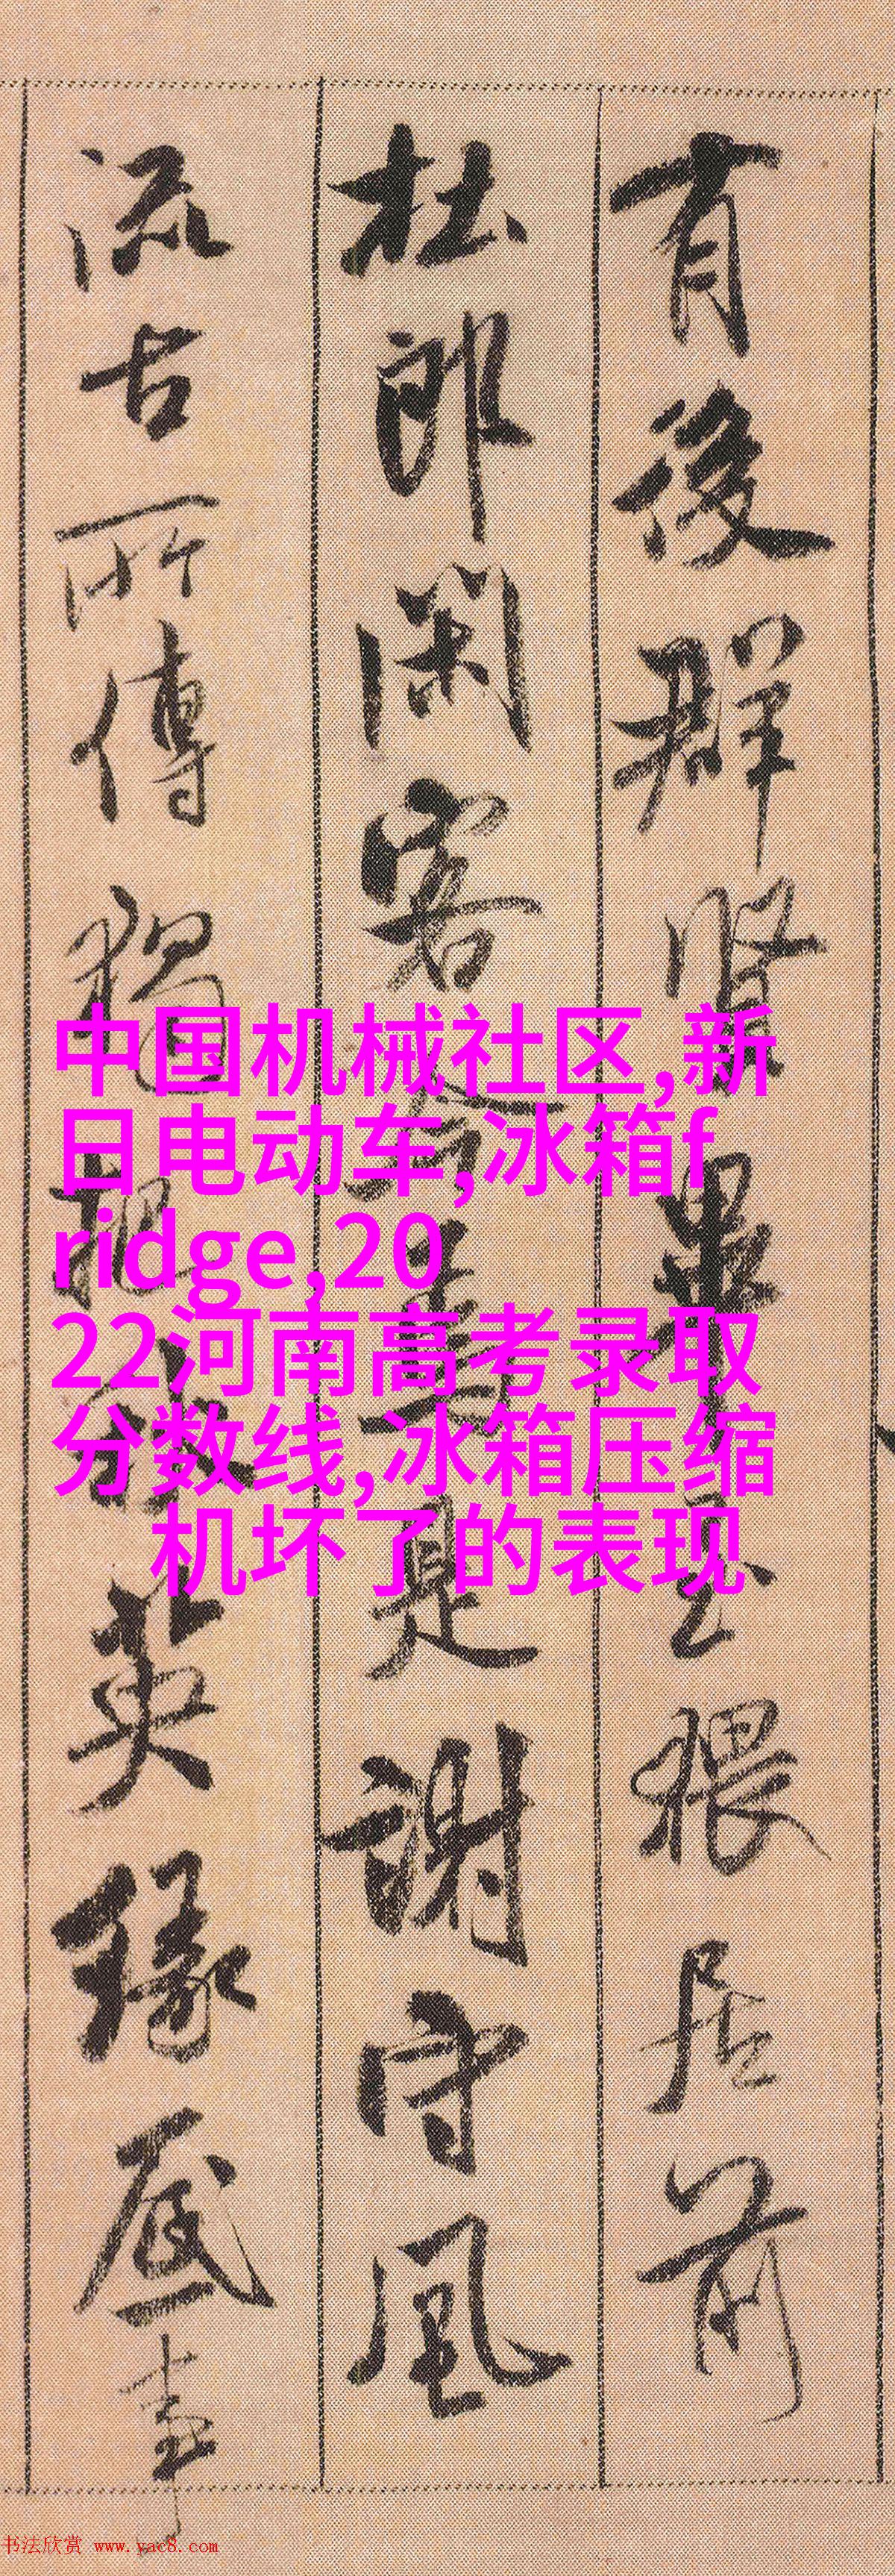 有後群賢畢至猥居前
杜郎閑客今焉是謝守風
流古所傳獨把秋英緣底事
中国机械社区,新
日电动车,冰箱f
ridge,20
22河南高考录取
分数线,冰箱压缩
机坏了的表现
书法欣赏 www.yac8.com